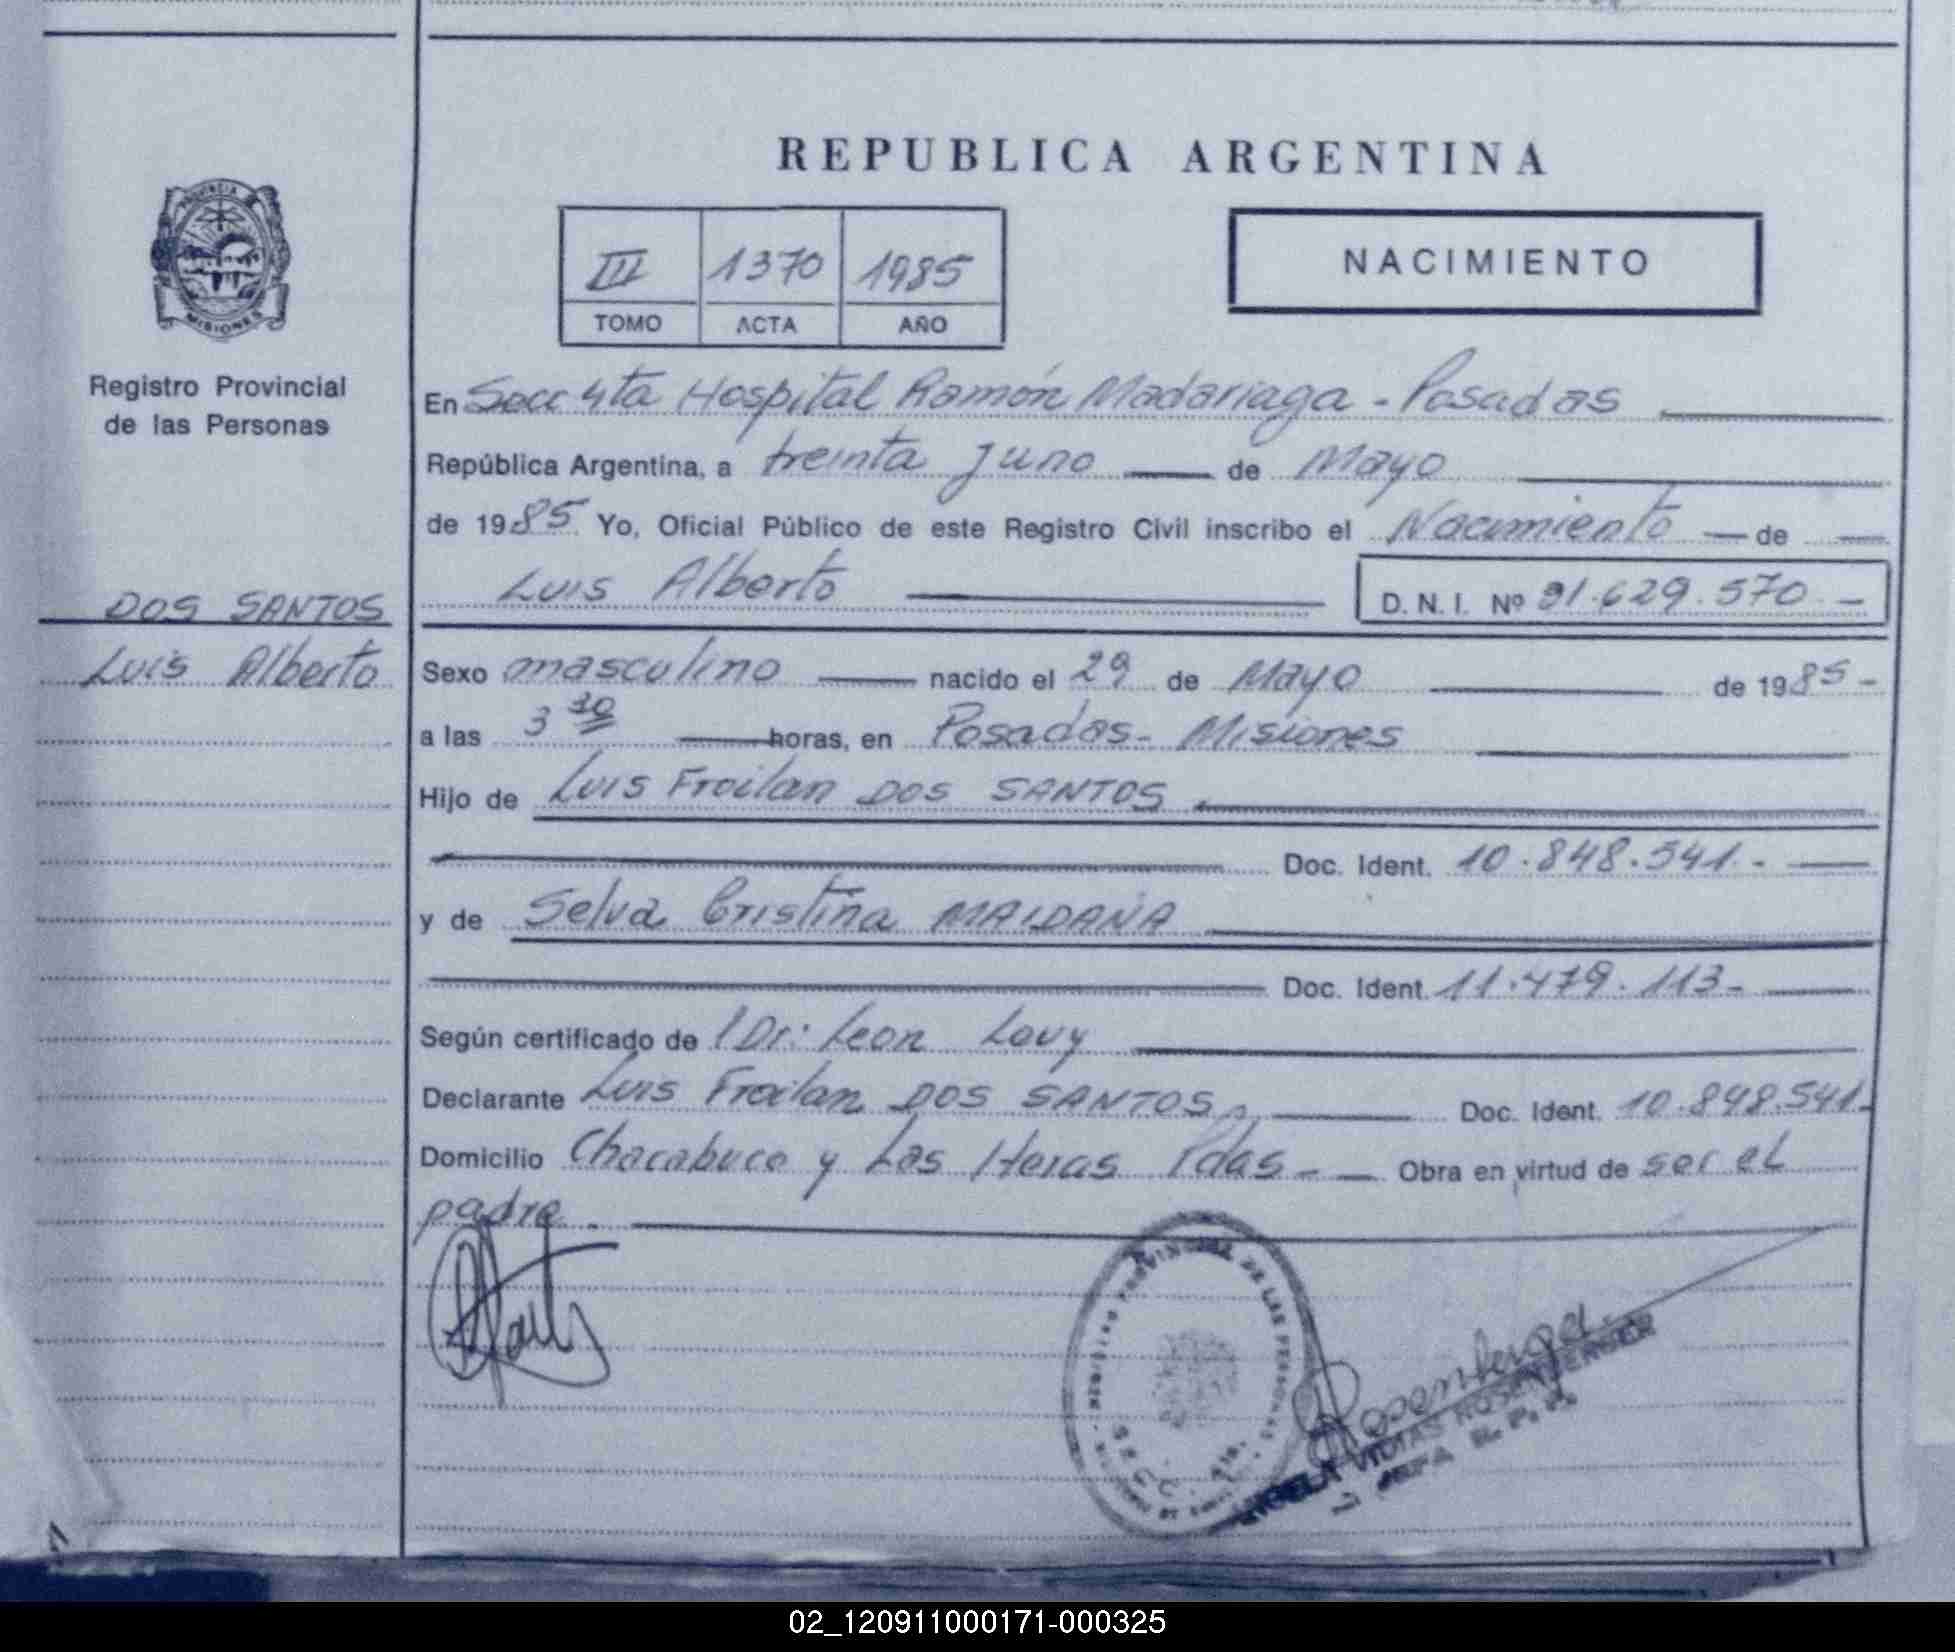 REPUBLICA ARGENTINA
PROVINCIA DE
MISIONES
Registro Provincial
de las Personas
III 1370 1985
TOMO ACTA AÑO
NACIMIENTO
En Secc 4ta Hospital Ramón Madariaga - Posadas
República Argentina, a treinta y uno de Mayo
de 1985 Yo, Oficial Público de este Registro Civil inscribo el Nacimiento de
Luis Alberto D. N. I. Nº 31.629.570 -
DOS SANTOS
Luis Alberto
Sexo masculino nacido el 29 de Mayo de 1985 -
a las 3 horas, en Posadas - Misiones
Hijo de Luis Froilan DOS SANTOS
Doc. Ident. 10.848.541 -
y de Selva Cristina MALDANA
Doc. Ident. 11.479.113 -
Según certificado de l Dr: Leon Lavy
Declarante Luis Froilan DOS SANTOS Doc. Ident. 10.848.541 -
Domicilio Chacabuco y Las Heras Pdas - Obra en virtud de ser el
padre.
PROVINCIAL DE LAS PERSONAS
ROSENBERGER
JEFA R. P. P.
02_120911000171-000325